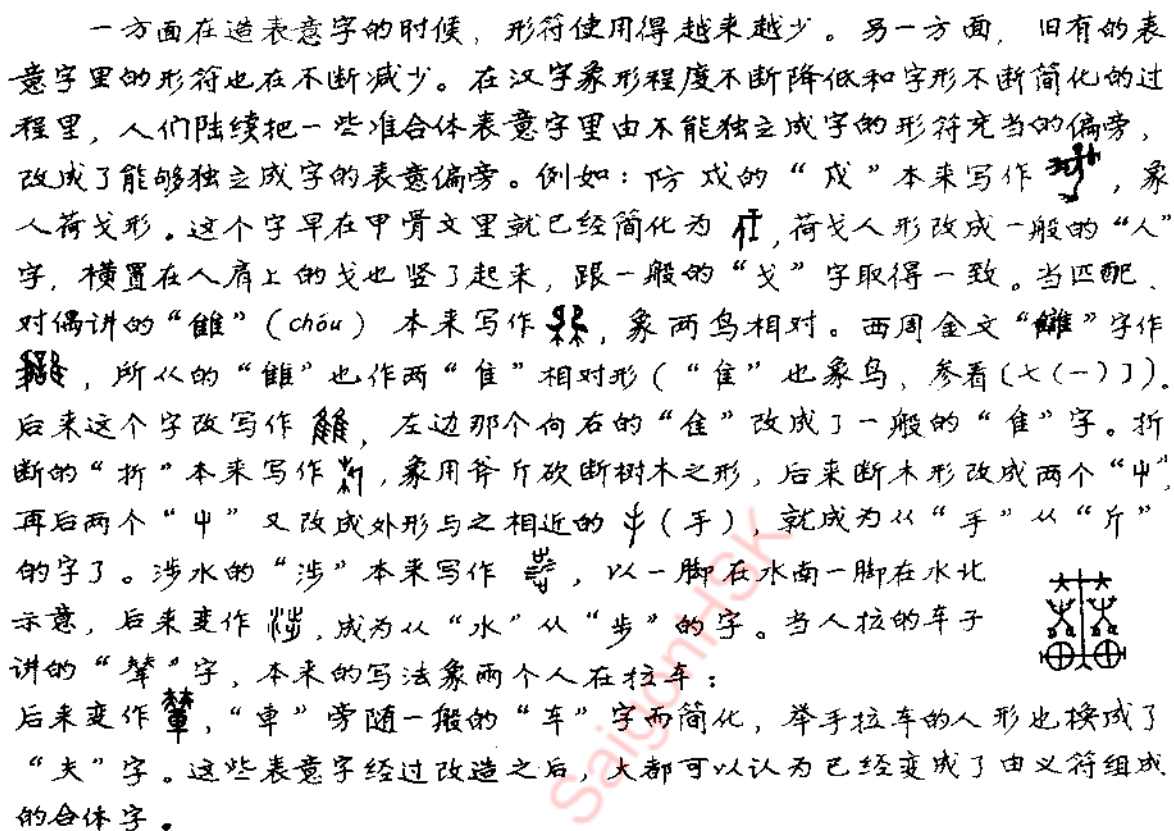 一方面在造表意字的时候，形符使用得越来越少。另一方面，旧有的表
意字里的形符也在不断减少。在汉字象形程度不断降低和字形不断简化的过
程里，人们陆续把一些准合体表意字里由不能独立成字的形符充当的偏旁，
改成了能够独立成字的表意偏旁。例如：防戍的“戍”本来写作，象
人荷戈形。这个字早在甲骨文里就已经简化为，荷戈人形改成一般的“人”
字，横置在人肩上的戈也竖了起来，跟一般的“戈”字取得一致。当匹配、
对偶讲的“雔”（chóu）本来写作，象两鸟相对。西周金文“雠”字作
，所从的“雔”也作两“隹”相对形（“隹”也象鸟，参看〔七(一)〕）。
后来这个字改写作，左边那个向右的“隹”改成了一般的“隹”字。折
断的“折”本来写作，象用斧斤砍断树木之形，后来断木形改成两个“屮”，
再后两个“屮”又改成外形与之相近的（手），就成为从“手”从“斤”
的字了。涉水的“涉”本来写作，以一脚在水南一脚在水北
示意，后来变作，成为从“水”从“步”的字。当人拉的车子
讲的“辇”字，本来的写法象两个人在拉车：
后来变作輦，“車”旁随一般的“车”字而简化，举手拉车的人形也换成了
“夫”字。这些表意字经过改造之后，大都可以认为已经变成了由义符组成
的合体字。
SaigonHSK